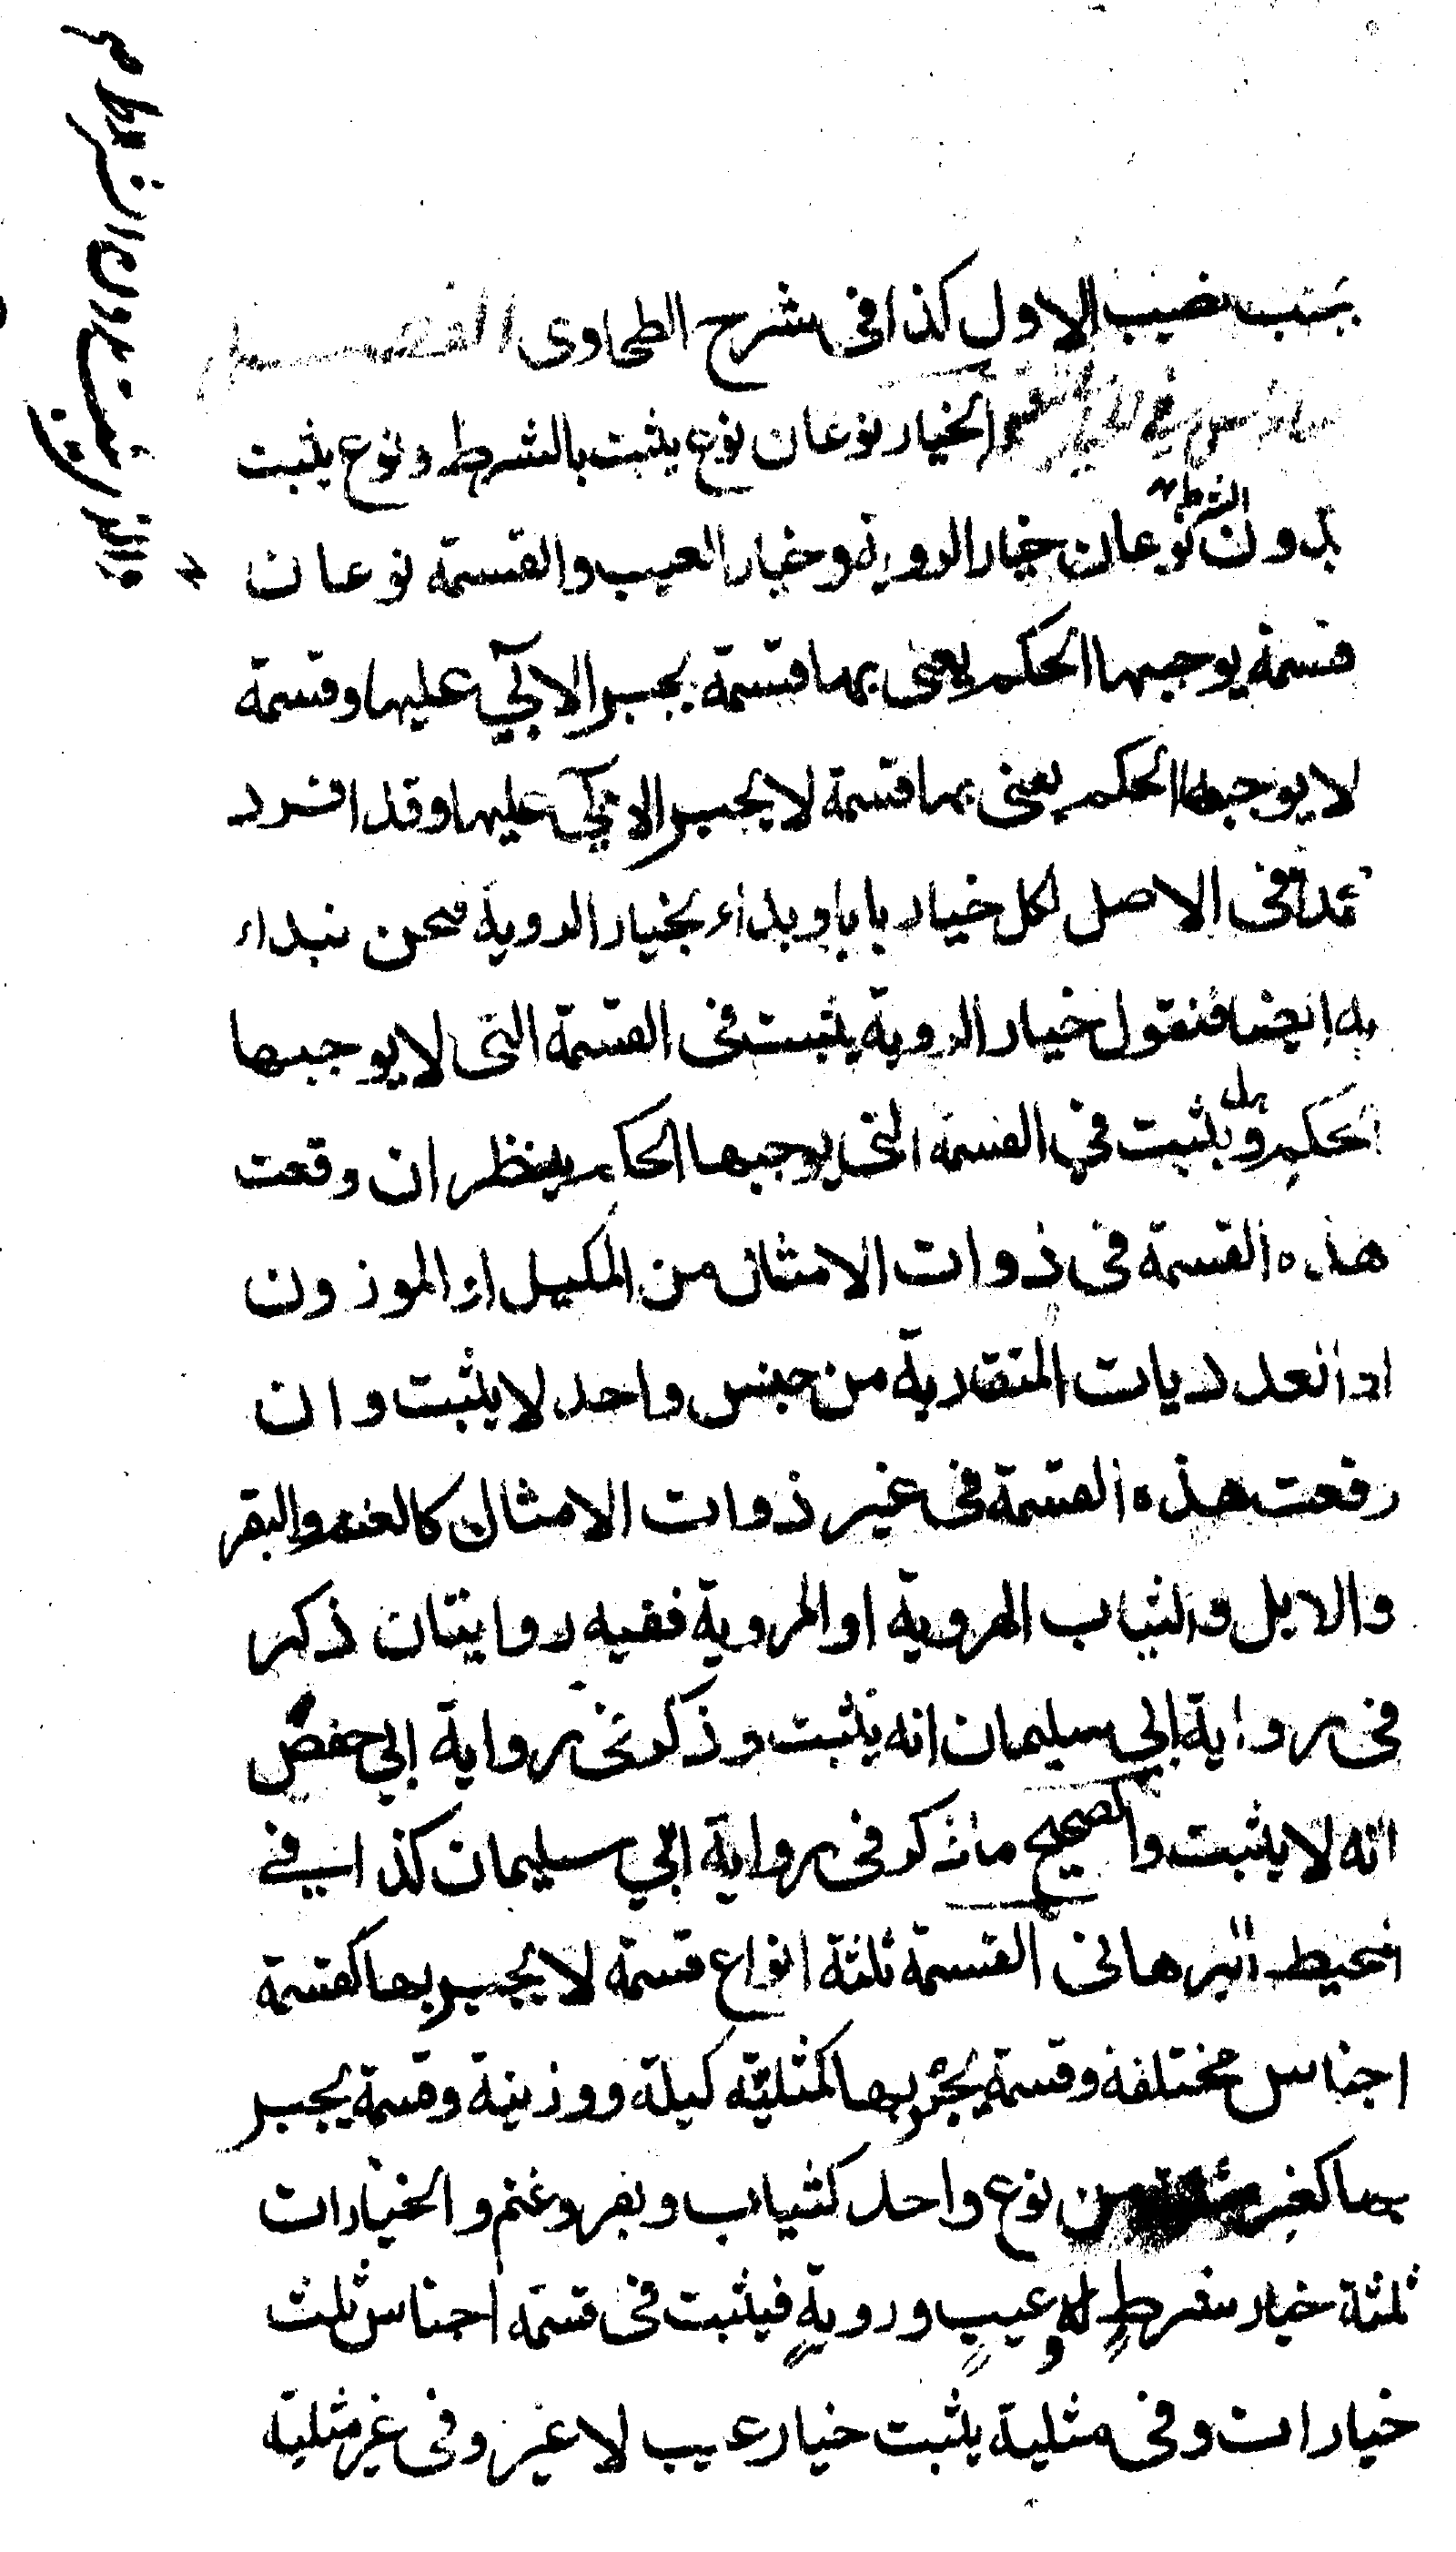 بجنب نصيب الاول كذا فى شرح الطحاوى الفصل
فى الخيار فى القسمة الخيار نوعان نوع يثبت بالشرط ونوع يثبت
بدون الشرط نوعان خيار الروية وخيار العيب والقسمة نوعان
قسمة يوجبها الحكم يعنى بها قسمة يجبر الآبي عليها وقسمة
لا يوجبها الحكم يعنى بها قسمة لا يجبر الآبي عليها وقد افرد
محمد فى الاصل لكل خيار بابا وبداء بخيار الروية فنحن نبداء
به ايضا فنقول خيار الروية يثبت فى القسمة التى لا يوجبها
الحكم وهل يثبت في القسمة التى يوجبها الحكم ينظر ان وقعت
هذه القسمة فى ذوات الامثال من المكيل او الموزون
او العدديات المتقاربة من جنس واحد لا يثبت وان
وقعت هذه القسمة فى غير ذوات الامثال كالغنم والبقر
والابل والثياب الهروية او المروية ففيه روايتان ذكر
فى رواية ابي سليمان انه يثبت وذكر فى رواية ابي حفص
انه لا يثبت والصحيح ما ذكر فى رواية ابي سليمان كذا في
المحيط البرهانى القسمة ثلثة انواع قسمة لا يجبر بها كقسمة
اجناس مختلفة وقسمة يجبر بها كمثليّة كيلة ووزنية وقسمة يجبر
بها كغير من نوع واحد كثياب وبقر وغنم والخيارات
ثلثة خيار شرطٍ وعيبٍ ورويةٍ فيثبت فى قسمة اجناس ثلث
خيارات وفى مثلية يثبت خيار عيب لا غير وفى غير مثلية